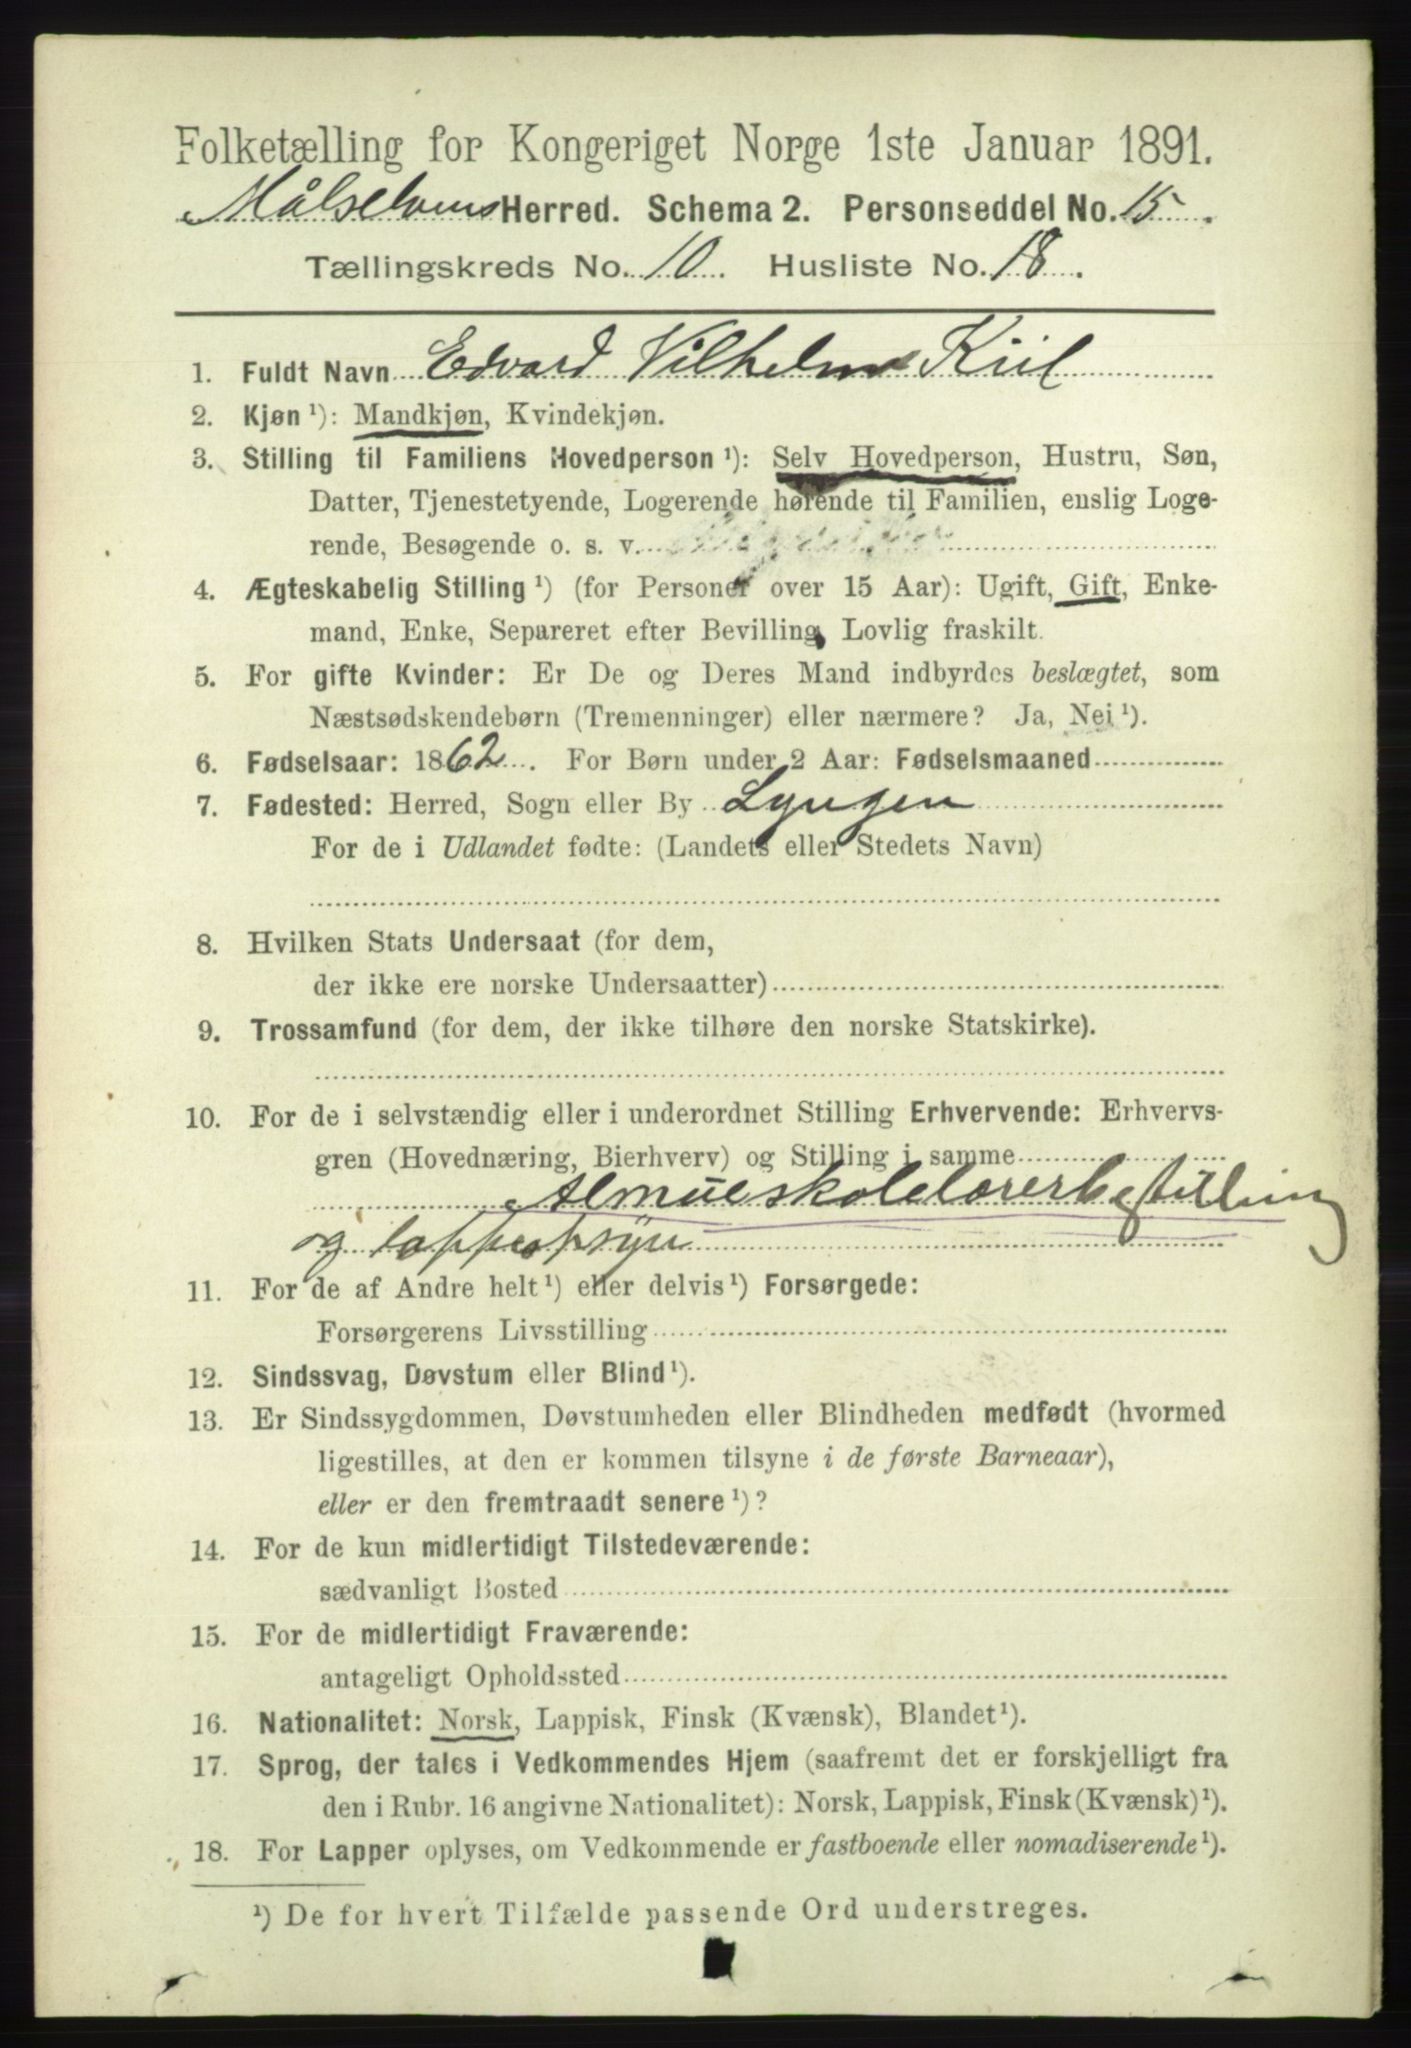 Folketælling for Kongeriget Norge 1ste Januar 1891.
Målselvens Herred. Schema 2. Personseddel No. 15.
Tællingskreds No. 10. Husliste No. 18.
1. Fuldt Navn Edvard Vilhelm Kiil
2. Kjøn ¹): Mandkjøn, Kvindekjøn.
3. Stilling til Familiens Hovedperson ¹): Selv Hovedperson, Hustru, Søn,
Datter, Tjenestetyende, Logerende hørende til Familien, enslig Loge-
rende, Besøgende o. s. v.
4. Ægteskabelig Stilling ¹) (for Personer over 15 Aar): Ugift, Gift, Enke-
mand, Enke, Separeret efter Bevilling, Lovlig fraskilt.
5. For gifte Kvinder: Er De og Deres Mand indbyrdes beslægtet, som
Næstsødskendebørn (Tremenninger) eller nærmere? Ja, Nei ¹).
6. Fødselsaar: 1862. For Børn under 2 Aar: Fødselsmaaned
7. Fødested: Herred, Sogn eller By Lyngen
For de i Udlandet fødte: (Landets eller Stedets Navn)
8. Hvilken Stats Undersaat (for dem,
der ikke ere norske Undersaatter)
9. Trossamfund (for dem, der ikke tilhøre den norske Statskirke).
10. For de i selvstændig eller i underordnet Stilling Erhvervende: Erhvervs-
gren (Hovednæring, Bierhverv) og Stilling i samme
Almueskolelærerbestilling
og lappeopsyn
11. For de af Andre helt ¹) eller delvis ¹) Forsørgede:
Forsørgerens Livsstilling
12. Sindssvag, Døvstum eller Blind ¹).
13. Er Sindssygdommen, Døvstumheden eller Blindheden medfødt (hvormed
ligestilles, at den er kommen tilsyne i de første Barneaar),
eller er den fremtraadt senere ¹)?
14. For de kun midlertidigt Tilstedeværende:
sædvanligt Bosted
15. For de midlertidigt Fraværende:
antageligt Opholdssted
16. Nationalitet: Norsk, Lappisk, Finsk (Kvænsk), Blandet ¹).
17. Sprog, der tales i Vedkommendes Hjem (saafremt det er forskjelligt fra
den i Rubr. 16 angivne Nationalitet): Norsk, Lappisk, Finsk (Kvænsk) ¹).
18. For Lapper oplyses, om Vedkommende er fastboende eller nomadiserende ¹).
¹) De for hvert Tilfælde passende Ord understreges.